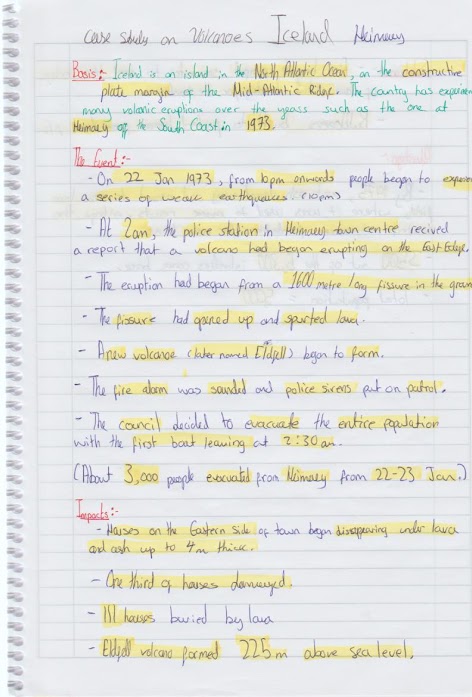 Case study on Volcanoes Iceland Heimaey
Basis:- Iceland is an island in the North Atlantic Ocean, on the constructive
plate margin of the Mid-Atlantic Ridge. The country has experien
many volcanic eruptions over the years such as the one at
Heimaey off the South Coast in 1973.
The Event:-
- On 22 Jan 1973, from 10pm onwards people began to experien
a series of weak earthquakes. (10pm)
- At 2am, the police station in Heimaey town centre recived
a report that a volcano had began erupting on the East Edge.
- The eruption had began from a 1600 metre long fissure in the groun
- The fissure had opened up and spurted lava.
- A new volcano (later named Eldfell) began to form.
- The fire alarm was sounded and police sirens put on patrol.
- The council decided to evacuate the entire population
with the first boat leaving at 2:30am.
(About 3,000 people evacuated from Heimaey from 22-23 Jan.)
Impacts:-
- Houses on the Eastern side of town began disappearing under lava
and ash up to 4m thick.
- One third of houses destroyed.
- 111 houses buried by lava
- Eldfell volcano formed 225m above sea level.